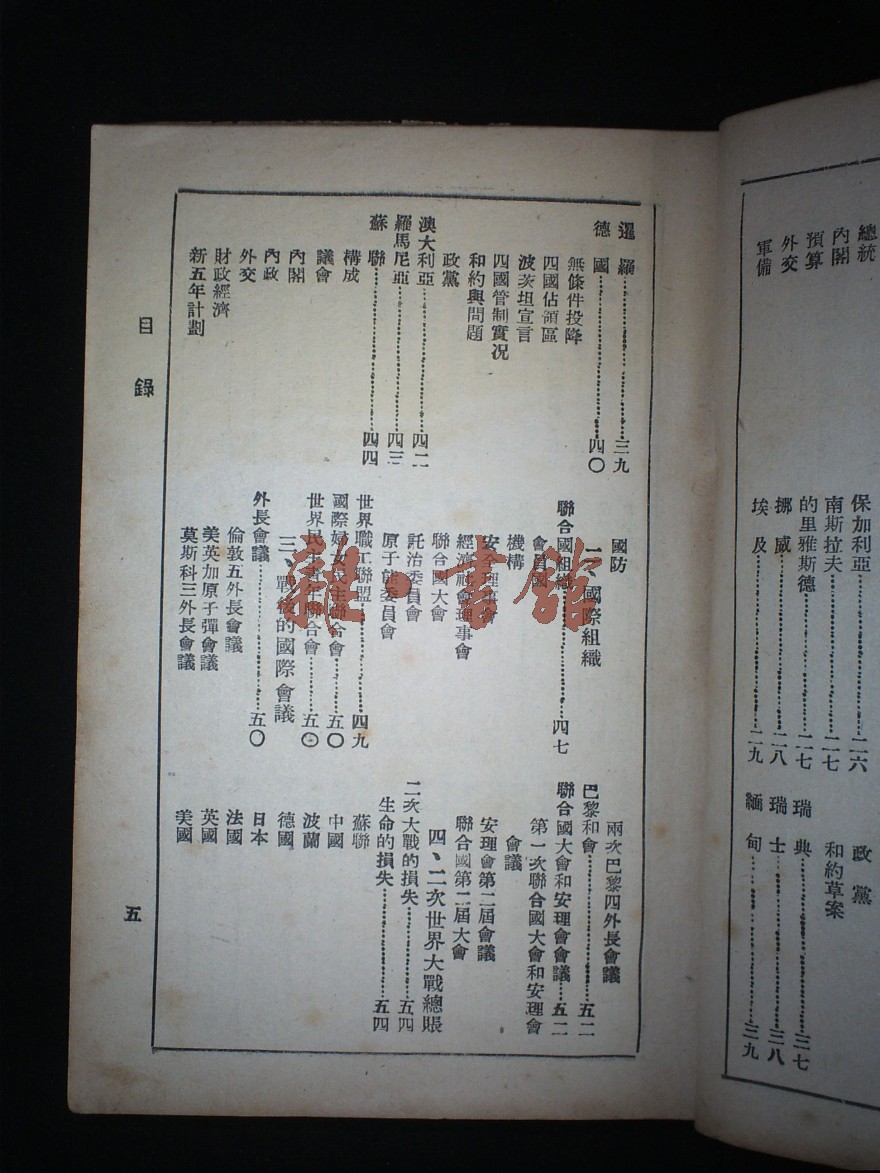 總統
內閣
預算
外交
軍備
保加利亞……二六
南斯拉夫……二七
的里雅斯德……二七
挪威……二八
埃及……二九
政黨
和約草案
瑞典……三七
瑞士……三八
緬甸……三九
暹羅……三九
德國……四〇
無條件投降
四國佔領區
波茨坦宣言
四國管制實況
和約與問題
政黨
澳大利亞……四二
羅馬尼亞……四三
蘇聯……四四
構成
議會
內閣
內政
外交
財政經濟
新五年計劃
國防
二、國際組織
聯合國組織……四七
會員國
機構
安全理事會
經濟社會理事會
聯合國大會
託治委員會
原子能委員會
世界職工聯盟……四九
國際婦女民主聯合會……五〇
世界民主青年聯合會……五〇
三、戰後的國際會議
外長會議……五〇
倫敦五外長會議
美英加原子彈會議
莫斯科三外長會議
兩次巴黎四外長會議
巴黎和會……五二
聯合國大會和安理會會議……五二
第一次聯合國大會和安理會
會議
安理會第二屆會議
聯合國第二屆大會
四、二次世界大戰總賬
二次大戰的損失……五四
生命的損失……五四
蘇聯
中國
波蘭
德國
日本
法國
英國
美國
目錄
五